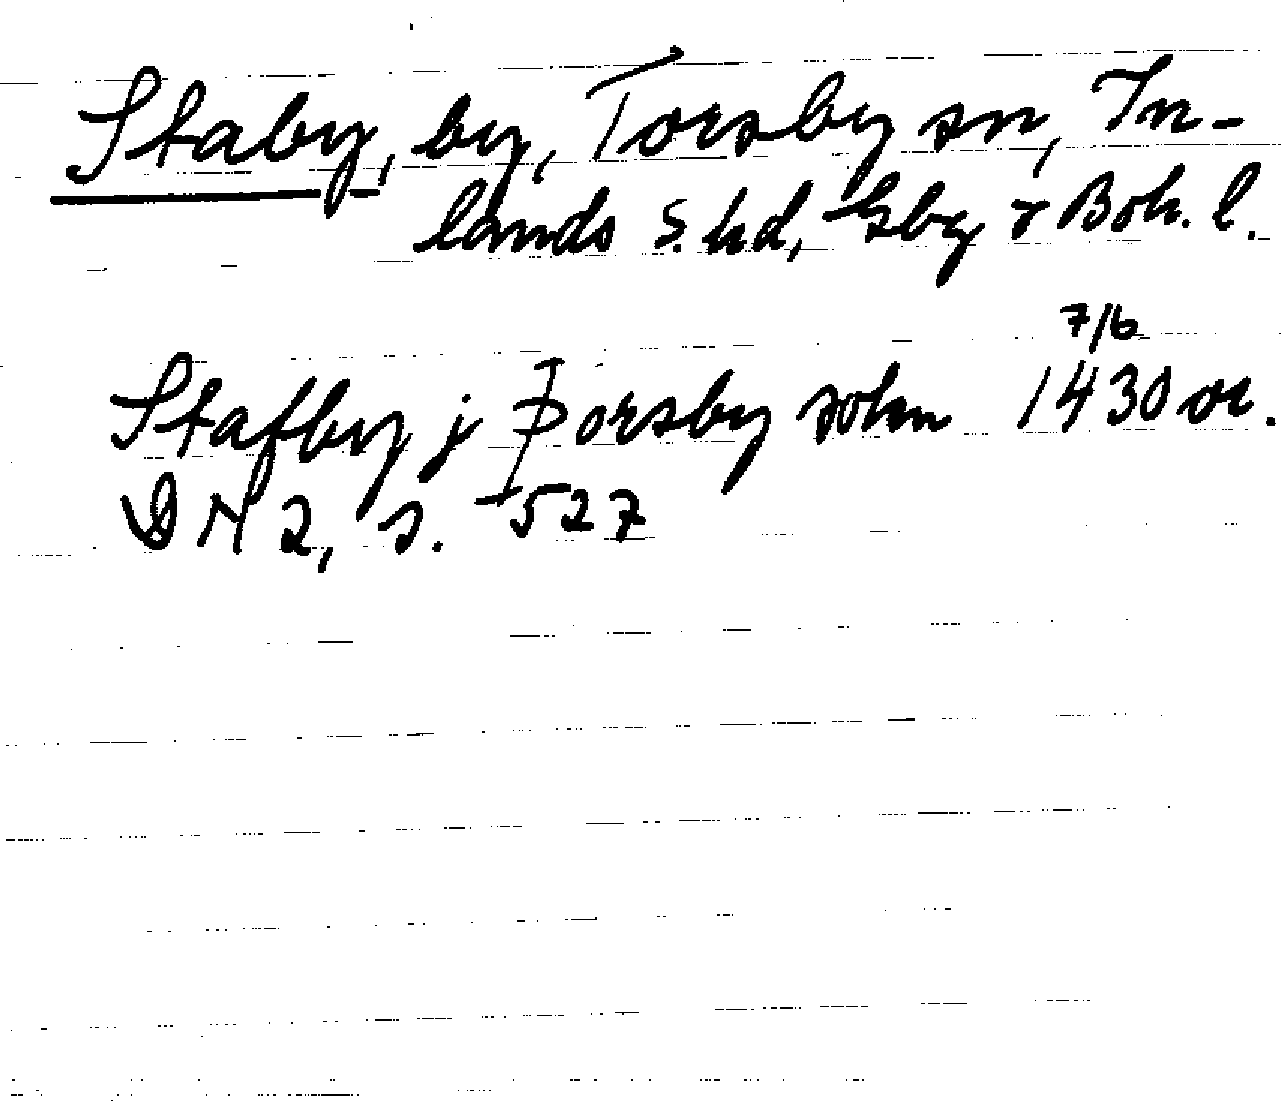 Staby, by, Torsby sn, In-
lands S. hd, Gbg o Boh. l.
7/6
Stafby j Þorsby sokn 1430 or.
DN 2, s. 527